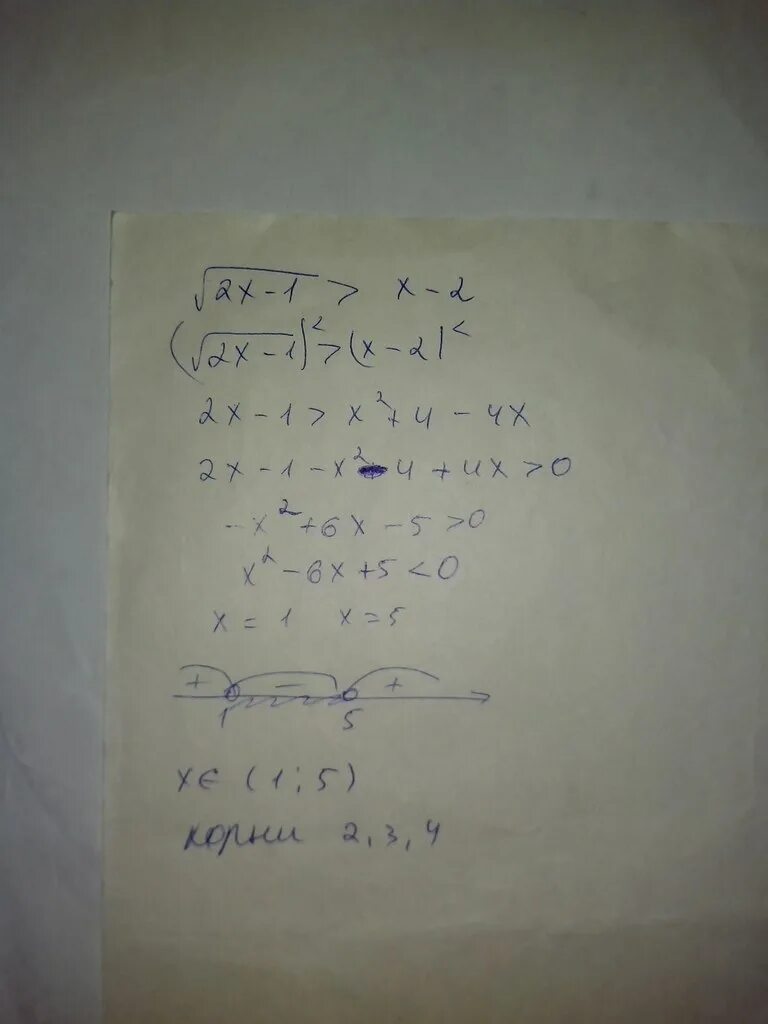 √2x-1 > x-2
(√2x-1)² > (x-2)²
2x-1 > x²+4-4x
2x-1-x²-4+4x>0
-x²+6x-5>0
x²-6x+5<0
x=1 x=5
+ - +
1 5
x∈(1;5)
корни 2,3,4